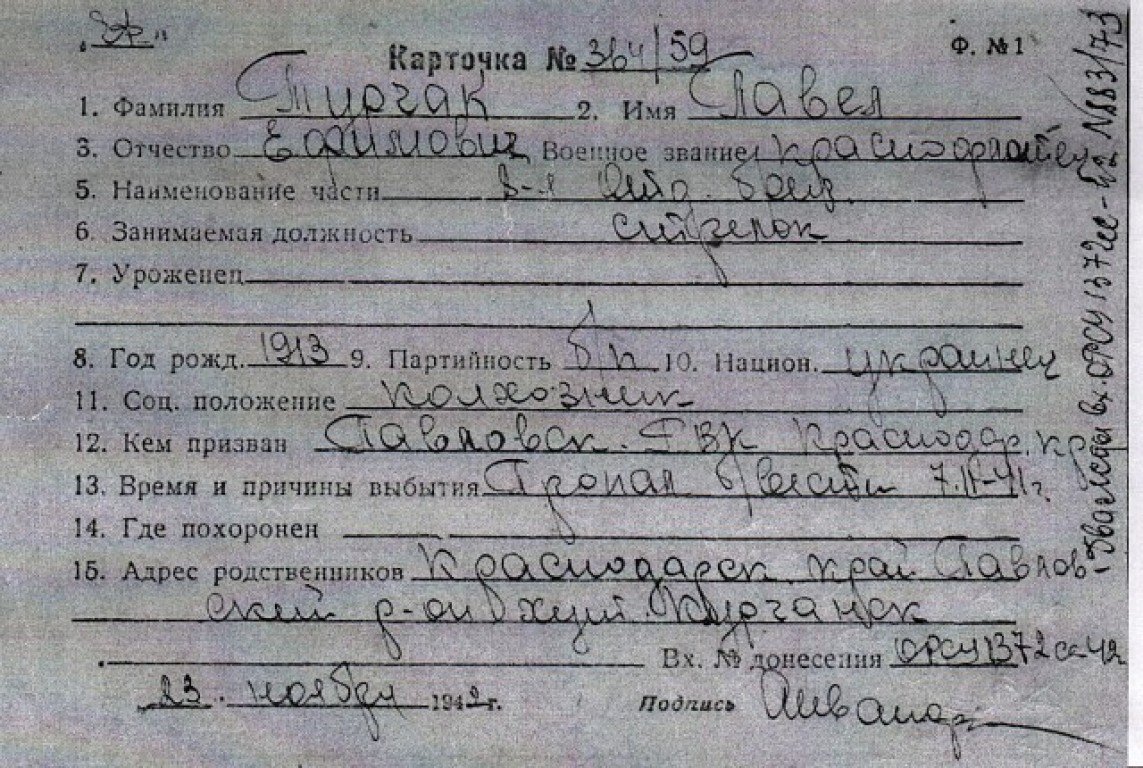 Карточка № 364/59
Ф. №1
1. Фамилия Тургак 2. Имя Павел
3. Отчество Ефимович Военное звание красноармеец
5. Наименование части 8-я отд. бриг.
6. Занимаемая должность стрелок
7. Уроженец
8. Год рожд. 1913 9. Партийность б/п 10. Национ. украинец
11. Соц. положение колхозник
12. Кем призван Павловск. РВК Краснодар. кр.
13. Время и причины выбытия Пропал б/вести 41 г.
14. Где похоронен
15. Адрес родственников Краснодарск. край Павлов-
ский р-он хут. Курганск
Вх. № донесения ОРСУ 1372 сс-42
23. ноября 1942 г. Подпись
Вх. ОРСУ 1372 сс-42